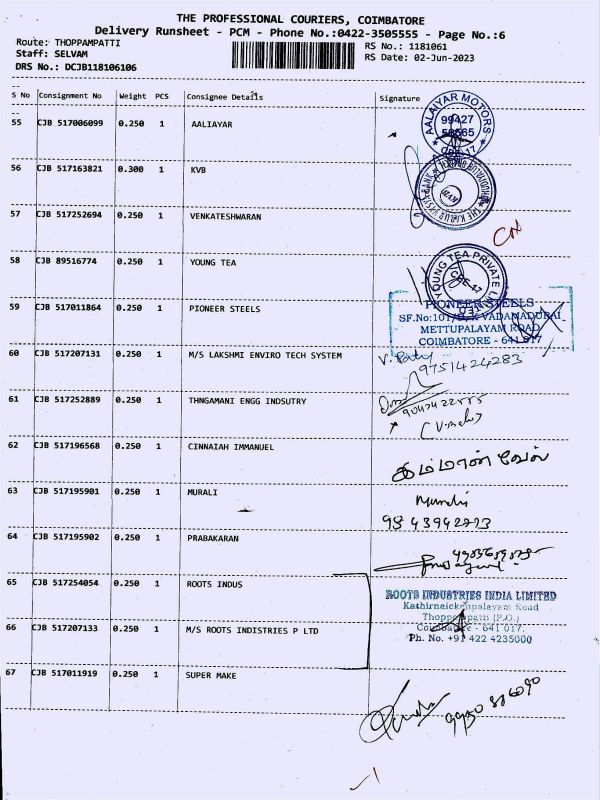 THE PROFESSIONAL COURIERS, COIMBATORE
Delivery Runsheet - PCM - Phone No.:0422-3505555 - Page No.:6
Route: THOPPAMPATTI
Staff: SELVAM
DRS No.: DCJB118106106
RS No.: 1181061
RS Date: 02-Jun-2023
S No Consignment No Weight PCS Consignee Details Signature
55 CJB 517006099 0.250 1 AALIAYAR
AALAIYAR MOTORS
99427
56565
CBE-17
56 CJB 517163821 0.300 1 KVB
KVB
57 CJB 517252694 0.250 1 VENKATESHWARAN
58 CJB 89516774 0.250 1 YOUNG TEA
YOUNG TEA PRIVATE LIMITED
59 CJB 517011864 0.250 1 PIONEER STEELS
PIONEER STEELS
VADAMADURAI
METTUPALAYAM ROAD
COIMBATORE - 641 017
60 CJB 517207131 0.250 1 M/S LAKSHMI ENVIRO TECH SYSTEM
9751424283
61 CJB 517252889 0.250 1 THNGAMANI ENGG INDSUTRY
62 CJB 517196568 0.250 1 CINNAIAH IMMANUEL
63 CJB 517195901 0.250 1 MURALI
Murali
64 CJB 517195902 0.250 1 PRABAKARAN
65 CJB 517254054 0.250 1 ROOTS INDUS
ROOTS INDUSTRIES INDIA LIMITED
Kathirnaickenpalayam Road
Thoppampatti (P.O.)
Coimbatore - 641 017.
Ph. No. +91 422 4235000
66 CJB 517207133 0.250 1 M/S ROOTS INDISTRIES P LTD
67 CJB 517011919 0.250 1 SUPER MAKE